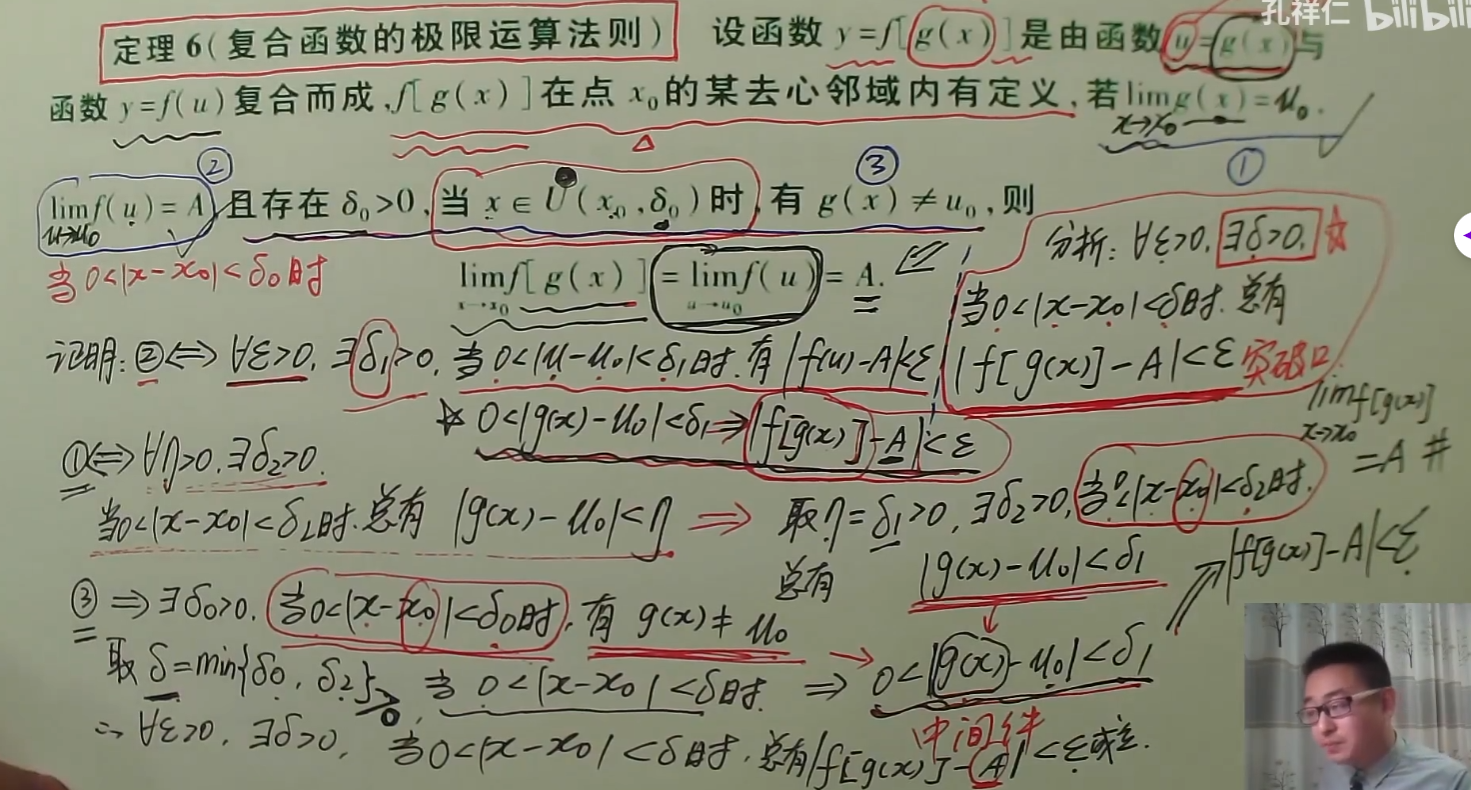 孔祥仁 bilibili
定理 6(复合函数的极限运算法则) 设函数 y=f[g(x)]是由函数 u=g(x)与
函数 y=f(u)复合而成,f[g(x)]在点 x₀的某去心邻域内有定义,若lim g(x)=u₀.
x→x₀
② ③ ①
lim f(u)=A,且存在 δ₀>0,当 x∈U(x₀,δ₀)时,有 g(x)≠u₀,则
u→u₀
当0<|x-x₀|<δ₀时
lim f[g(x)]=lim f(u)=A.
x→x₀ u→u₀
分析: ∀ε>0, ∃δ>0, ☆
当0<|x-x₀|<δ时.总有
|f[g(x)]-A|<ε 突破口
证明: ②⇔ ∀ε>0, ∃δ₁>0, 当0<|u-u₀|<δ₁时.有|f(u)-A|<ε
☆ 0<|g(x)-u₀|<δ₁⇒|f[g(x)]-A|<ε
lim f[g(x)]
x→x₀
=A #
①⇔∀η>0,∃δ₂>0.
当0<|x-x₀|<δ₂时.总有 |g(x)-u₀|<η ⇒ 取η=δ₁>0,∃δ₂>0,当0<|x-x₀|<δ₂时.
总有 |g(x)-u₀|<δ₁
|f[g(x)]-A|<ε
③⇒∃δ₀>0.当0<|x-x₀|<δ₀时,有 g(x)≠u₀
取 δ=min{δ₀,δ₂}>0,当 0<|x-x₀|<δ时. ⇒ 0<|g(x)-u₀|<δ₁
中间件
∴ ∀ε>0, ∃δ>0, 当0<|x-x₀|<δ时,总有|f[g(x)]-A|<ε成立.